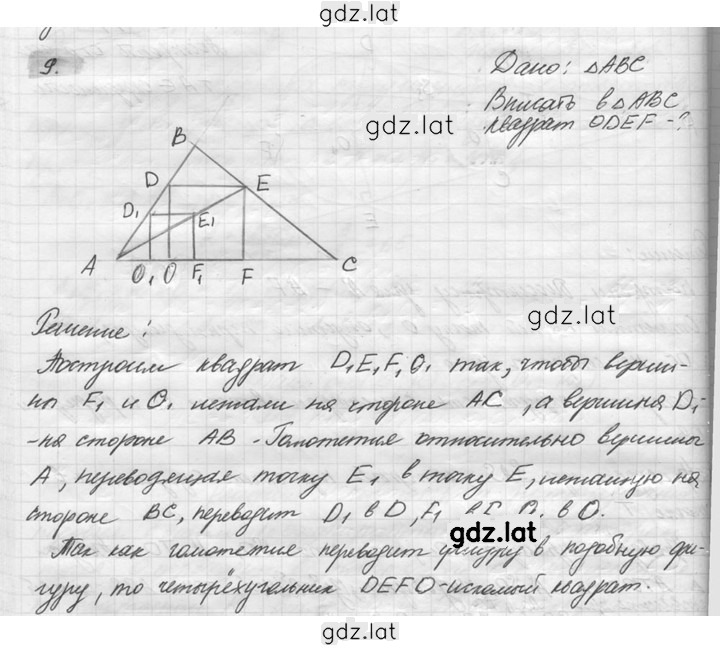 gdz.lat
9.
Дано: △ABC
Вписать в △ABC
квадрат ODEF - ?
gdz.lat
B
D
E
D₁
E₁
A
O₁ O F₁ F
C
gdz.lat
Решение:
Построим квадрат D₁E₁F₁O₁ так, чтобы верши-
ны F₁ и O₁ лежали на стороне AC, а вершина D₁-
-на стороне AB - Гомотетия относительно вершины
A, переводящая точку E₁ в точку E, лежащую на
стороне BC, переводит D₁ в D, F₁ в F O₁ в O.
gdz.lat
Так как гомотетия переводит фигуру в подобную фи-
гуру, то четырёхугольник DEFO-искомый квадрат.
gdz.lat